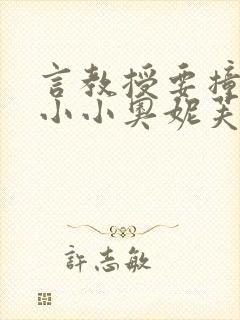 言教授要撞
小小奥妮芙
許志敏